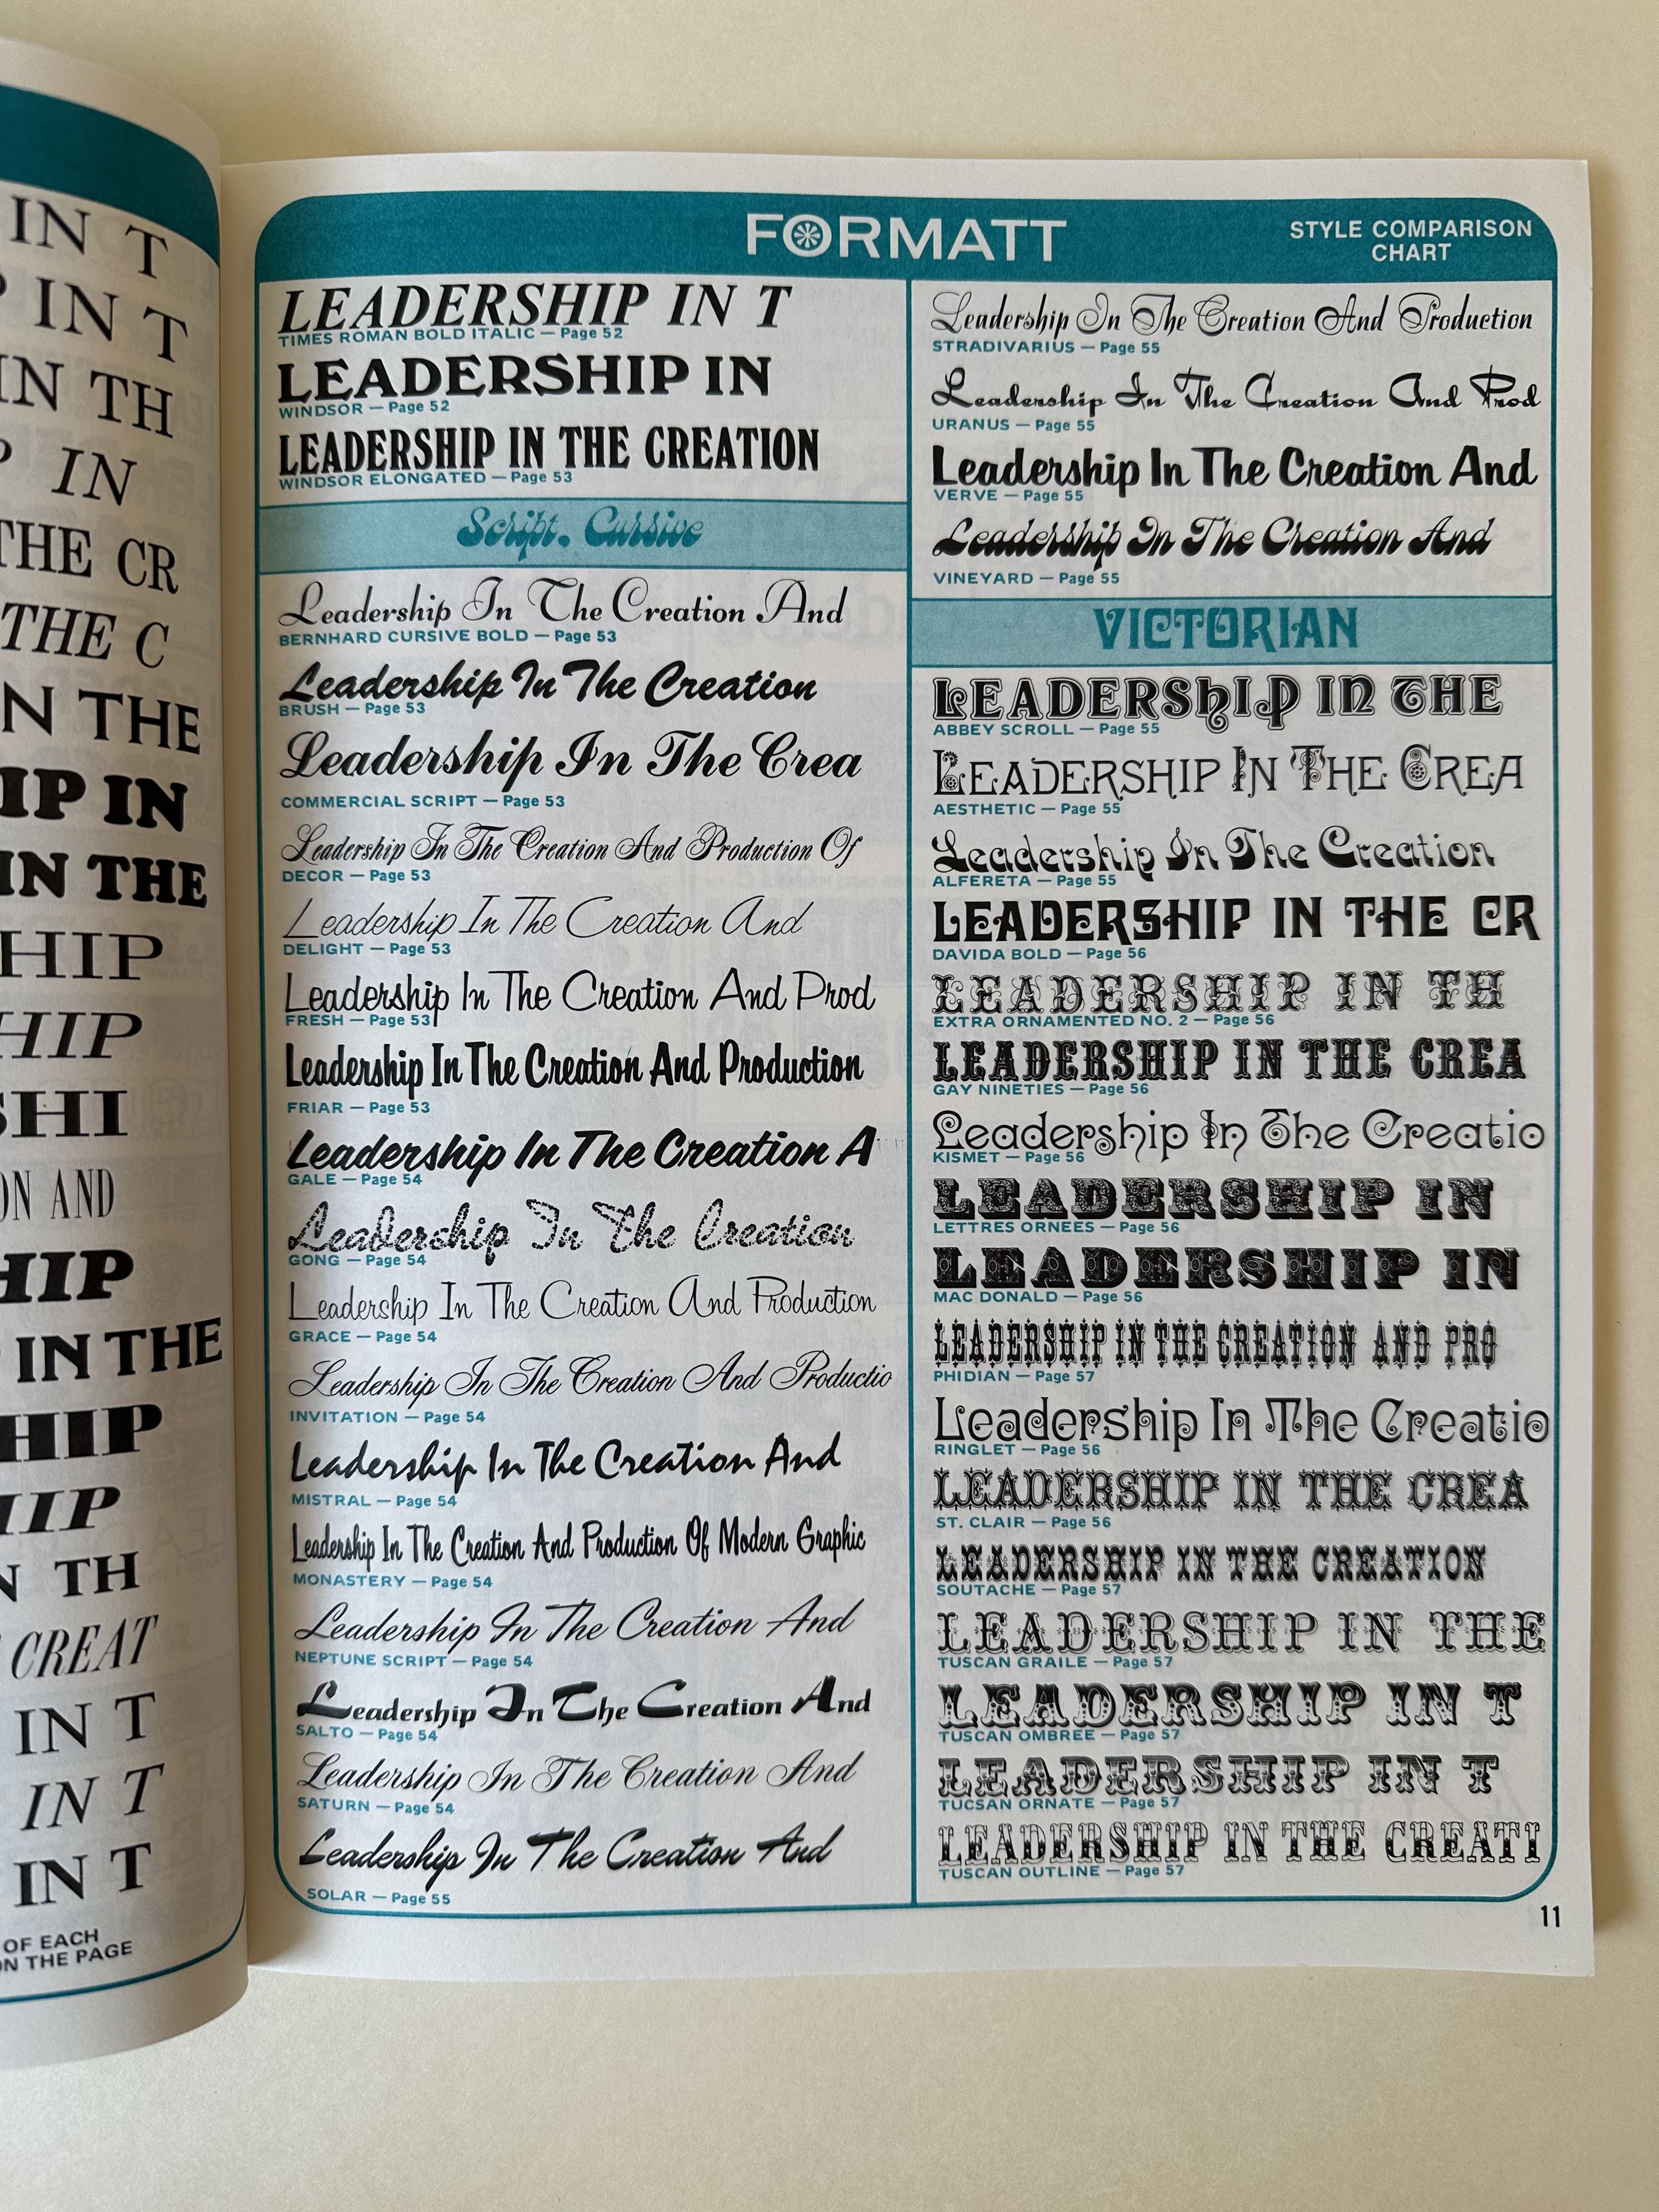 IN T
P IN T
IN TH
P IN
THE CR
THE C
N THE
IP IN
IN THE
HIP
HIP
SHI
ON AND
HIP
IN THE
HIP
HIP
N TH
CREAT
IN T
IN T
IN T
OF EACH
ON THE PAGE
FORMATT
STYLE COMPARISON
CHART
LEADERSHIP IN T
TIMES ROMAN BOLD ITALIC — Page 52
LEADERSHIP IN
WINDSOR — Page 52
LEADERSHIP IN THE CREATION
WINDSOR ELONGATED — Page 53
Script, Cursive
Leadership In The Creation And
BERNHARD CURSIVE BOLD — Page 53
Leadership In The Creation
BRUSH — Page 53
Leadership In The Crea
COMMERCIAL SCRIPT — Page 53
Leadership In The Creation And Production Of
DECOR — Page 53
Leadership In The Creation And
DELIGHT — Page 53
Leadership In The Creation And Prod
FRESH — Page 53
Leadership In The Creation And Production
FRIAR — Page 53
Leadership In The Creation A
GALE — Page 54
Leadership In The Creation
GONG — Page 54
Leadership In The Creation And Production
GRACE — Page 54
Leadership In The Creation And Productio
INVITATION — Page 54
Leadership In The Creation And
MISTRAL — Page 54
Leadership In The Creation And Production Of Modern Graphic
MONASTERY — Page 54
Leadership In The Creation And
NEPTUNE SCRIPT — Page 54
Leadership In The Creation And
SALTO — Page 54
Leadership In The Creation And
SATURN — Page 54
Leadership In The Creation And
SOLAR — Page 55
Leadership In The Creation And Production
STRADIVARIUS — Page 55
Leadership In The Creation And Prod
URANUS — Page 55
Leadership In The Creation And
VERVE — Page 55
Leadership In The Creation And
VINEYARD — Page 55
VICTORIAN
LEADERShIP IN THE
ABBEY SCROLL — Page 55
LEADERSHIP IN THE CREA
AESTHETIC — Page 55
Leadership In The Creation
ALFERETA — Page 55
LEADERSHIP IN THE CR
DAVIDA BOLD — Page 56
LEADERSHIP IN TH
EXTRA ORNAMENTED NO. 2 — Page 56
LEADERSHIP IN THE CREA
GAY NINETIES — Page 56
Leadership In The Creatio
KISMET — Page 56
LEADERSHIP IN
LETTRES ORNEES — Page 56
LEADERSHIP IN
MAC DONALD — Page 56
LEADERSHIP IN THE CREATION AND PRO
PHIDIAN — Page 57
Leadership In The Creatio
RINGLET — Page 56
LEADERSHIP IN THE CREA
ST. CLAIR — Page 56
LEADERSHIP IN THE CREATION
SOUTACHE — Page 57
LEADERSHIP IN THE
TUSCAN GRAILE — Page 57
LEADERSHIP IN T
TUSCAN OMBREE — Page 57
LEADERSHIP IN T
TUCSAN ORNATE — Page 57
LEADERSHIP IN THE CREATI
TUSCAN OUTLINE — Page 57
11